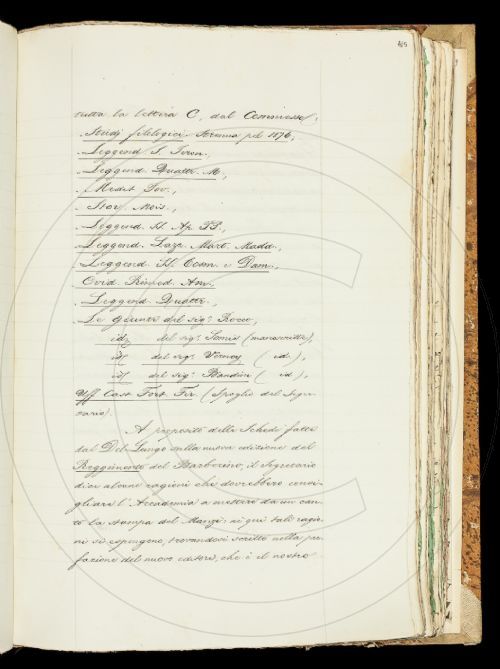 465
tutta la lettera C, dal Commesso,
Studj filologici Strenna pel 1876,
Leggend. S. Giron.,
Leggend. Quattr. M.,
Medit. Pov.,
Stor. Mois.,
Leggend. SS. Ap. PP.,
Leggend. Lazz. Mart. Madd.,
Leggend. SS. Cosm. e Dam.,
Ovid. Rimed. Am.
Leggend. Quattr.,
Le Giunte del sig.r Rocco,
id. del sig.r (manoscritte),
id. del sig.r (id.),
id. del sig.r Bandini (id.),
Uff. Cast. Fort. Fir. (Spoglio del Segre-
tario).
A proposito delle Schede fatte
dal Del Lungo sulla nuova edizione del
Reggimento del Barberino, il Segretario
dice alcune ragioni che dovrebbero consi-
gliare l'Accademia a mettere da un can-
to la stampa del Manzi: ai qui tali ragio-
ni si espongono, trovandosi scritte nella pre-
fazione del nuovo editore, che è il nostro